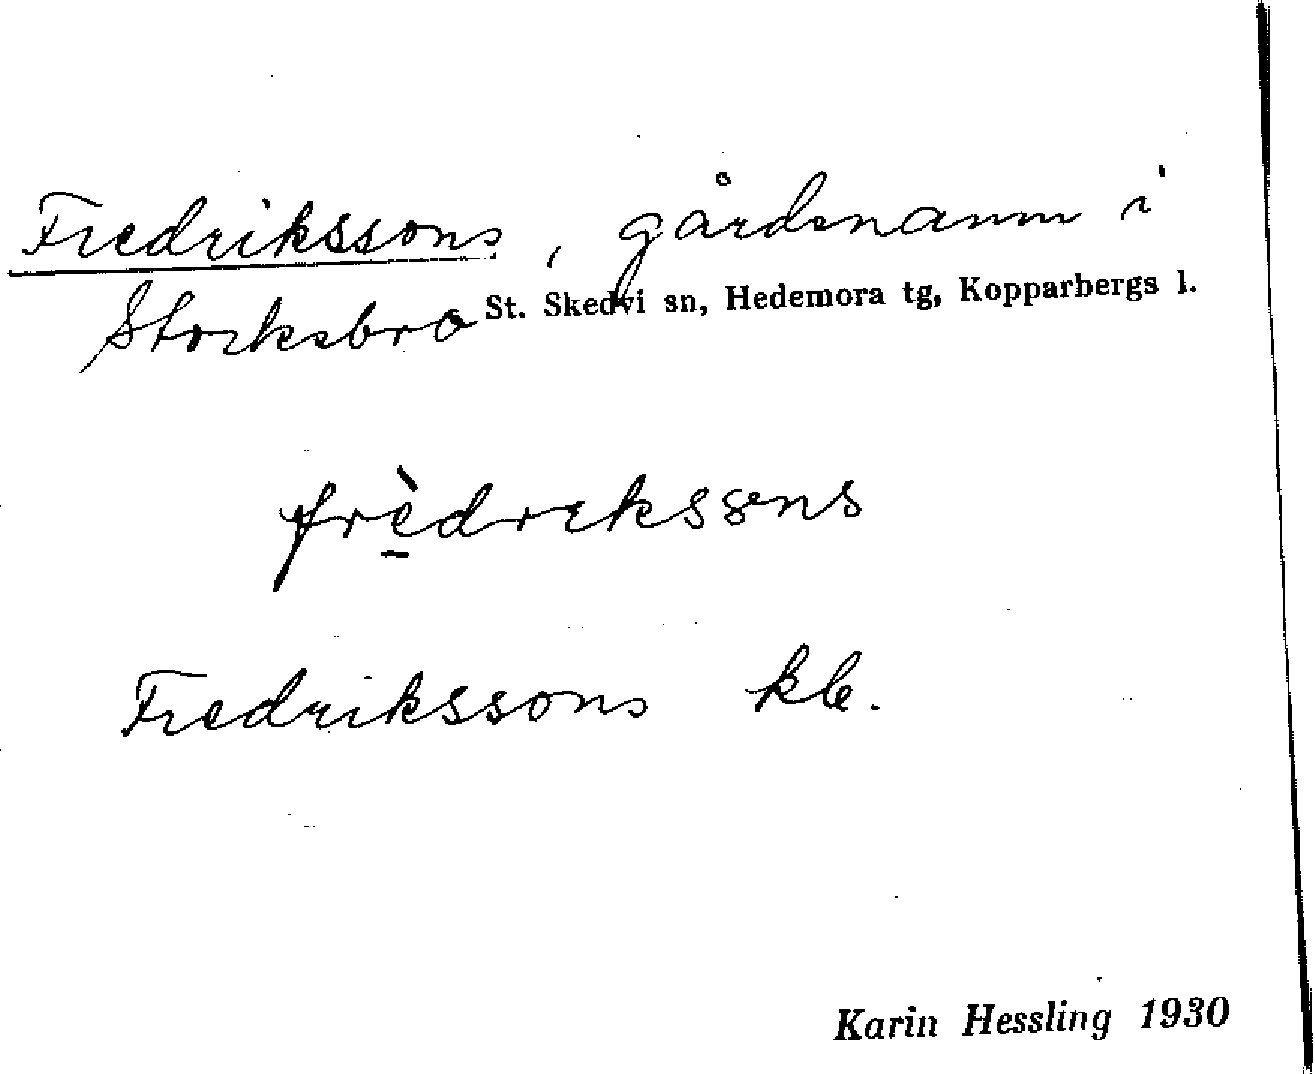 Fredrikssons, gårdsnamn i
Stocksbro St. Skedvi sn, Hedemora tg, Kopparbergs l.
frèdrekssens
Fredrikssons kb.
Karin Hessling 1930